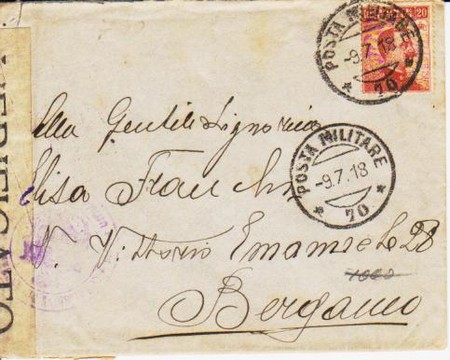 20
POSTA MILITARE
-9.7.18
* 70 *
Alla Gentile Signorina
POSTA MILITARE
-9.7.18
* 70 *
Elisa Franchi
V. Vittorio Emanuele 28
Bergamo
VERIFICATO